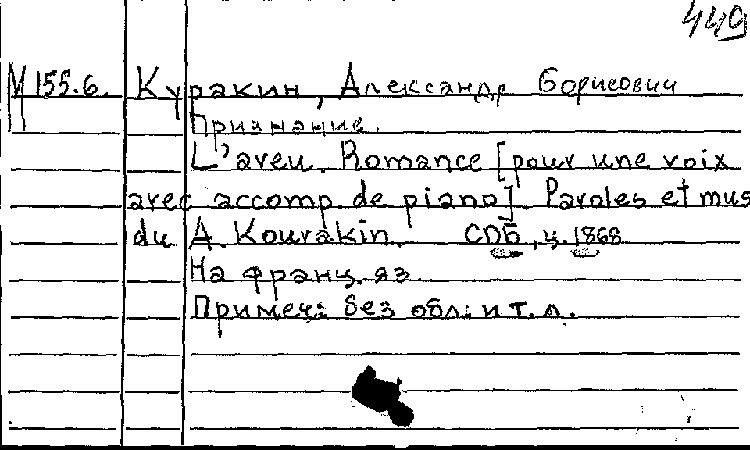 449
М 155.6. Куракин, Александр Борисович
Признание.
L'aveu. Romance [pour une voix
avec accomp. de piano]. Paroles et mus
du A. Kourakin. СПБ, ц. 1868
На франц. яз.
Примеч: без обл. и т.л.